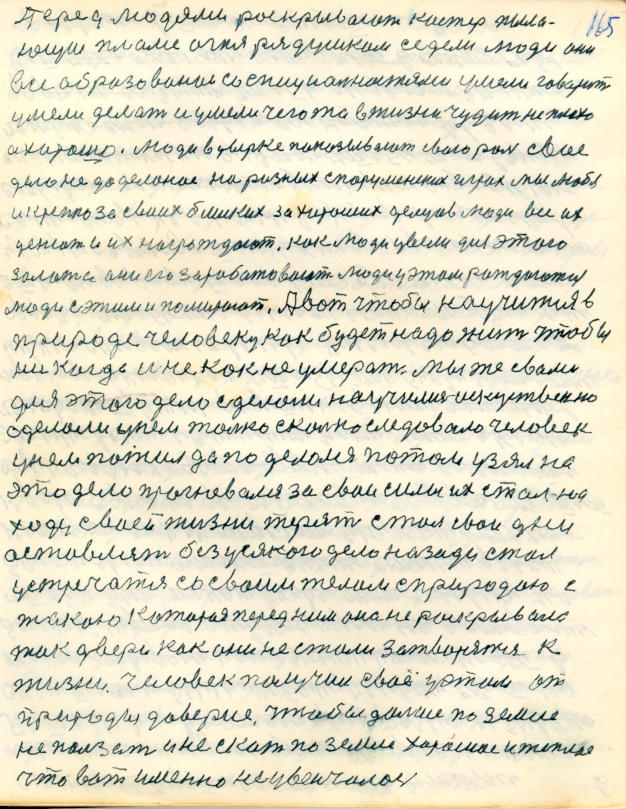 165
Перед людями роскрывают костер пыла-
ющие пламе огня рядушком седели люди они
все образованои со специалностями умели говорит
умели делат и умели чего то в жизни чудит не плохо
а хорошо. Люди в цверке показывают свого рол свое
дело не доделоное на розных споруменских играх мы любя
и крепко за своих близких за хороших делцов люди все их
денгами их нагрождают. как люди увели для этого
золото они его зарабатовоют люди у этом рождаются
люди с этим и помирают. А вот чтобы научится в
природе человеку как будет надо жит чтобы
никогда и не как не умерат. мы же свами
для этого дело сделоли научилис искуственно
сделоли унем толко сколко следовало человек
унем пожил да поделолся потом узял на
это дело прогневался за свои силы их стал на
ходу своей жизни терят стал свои дни
оставлят без усякого дело назади стал
устречатся со своим телом с природою с
такою которая перед ним она не роскрывала
так двери как они не стали затворятся к
жизни. человек получил своё у этом от
природы доверие, чтобы далше по земле
не ползат и не скат по земле хорошое и теплое
что вот именно не увенчалос